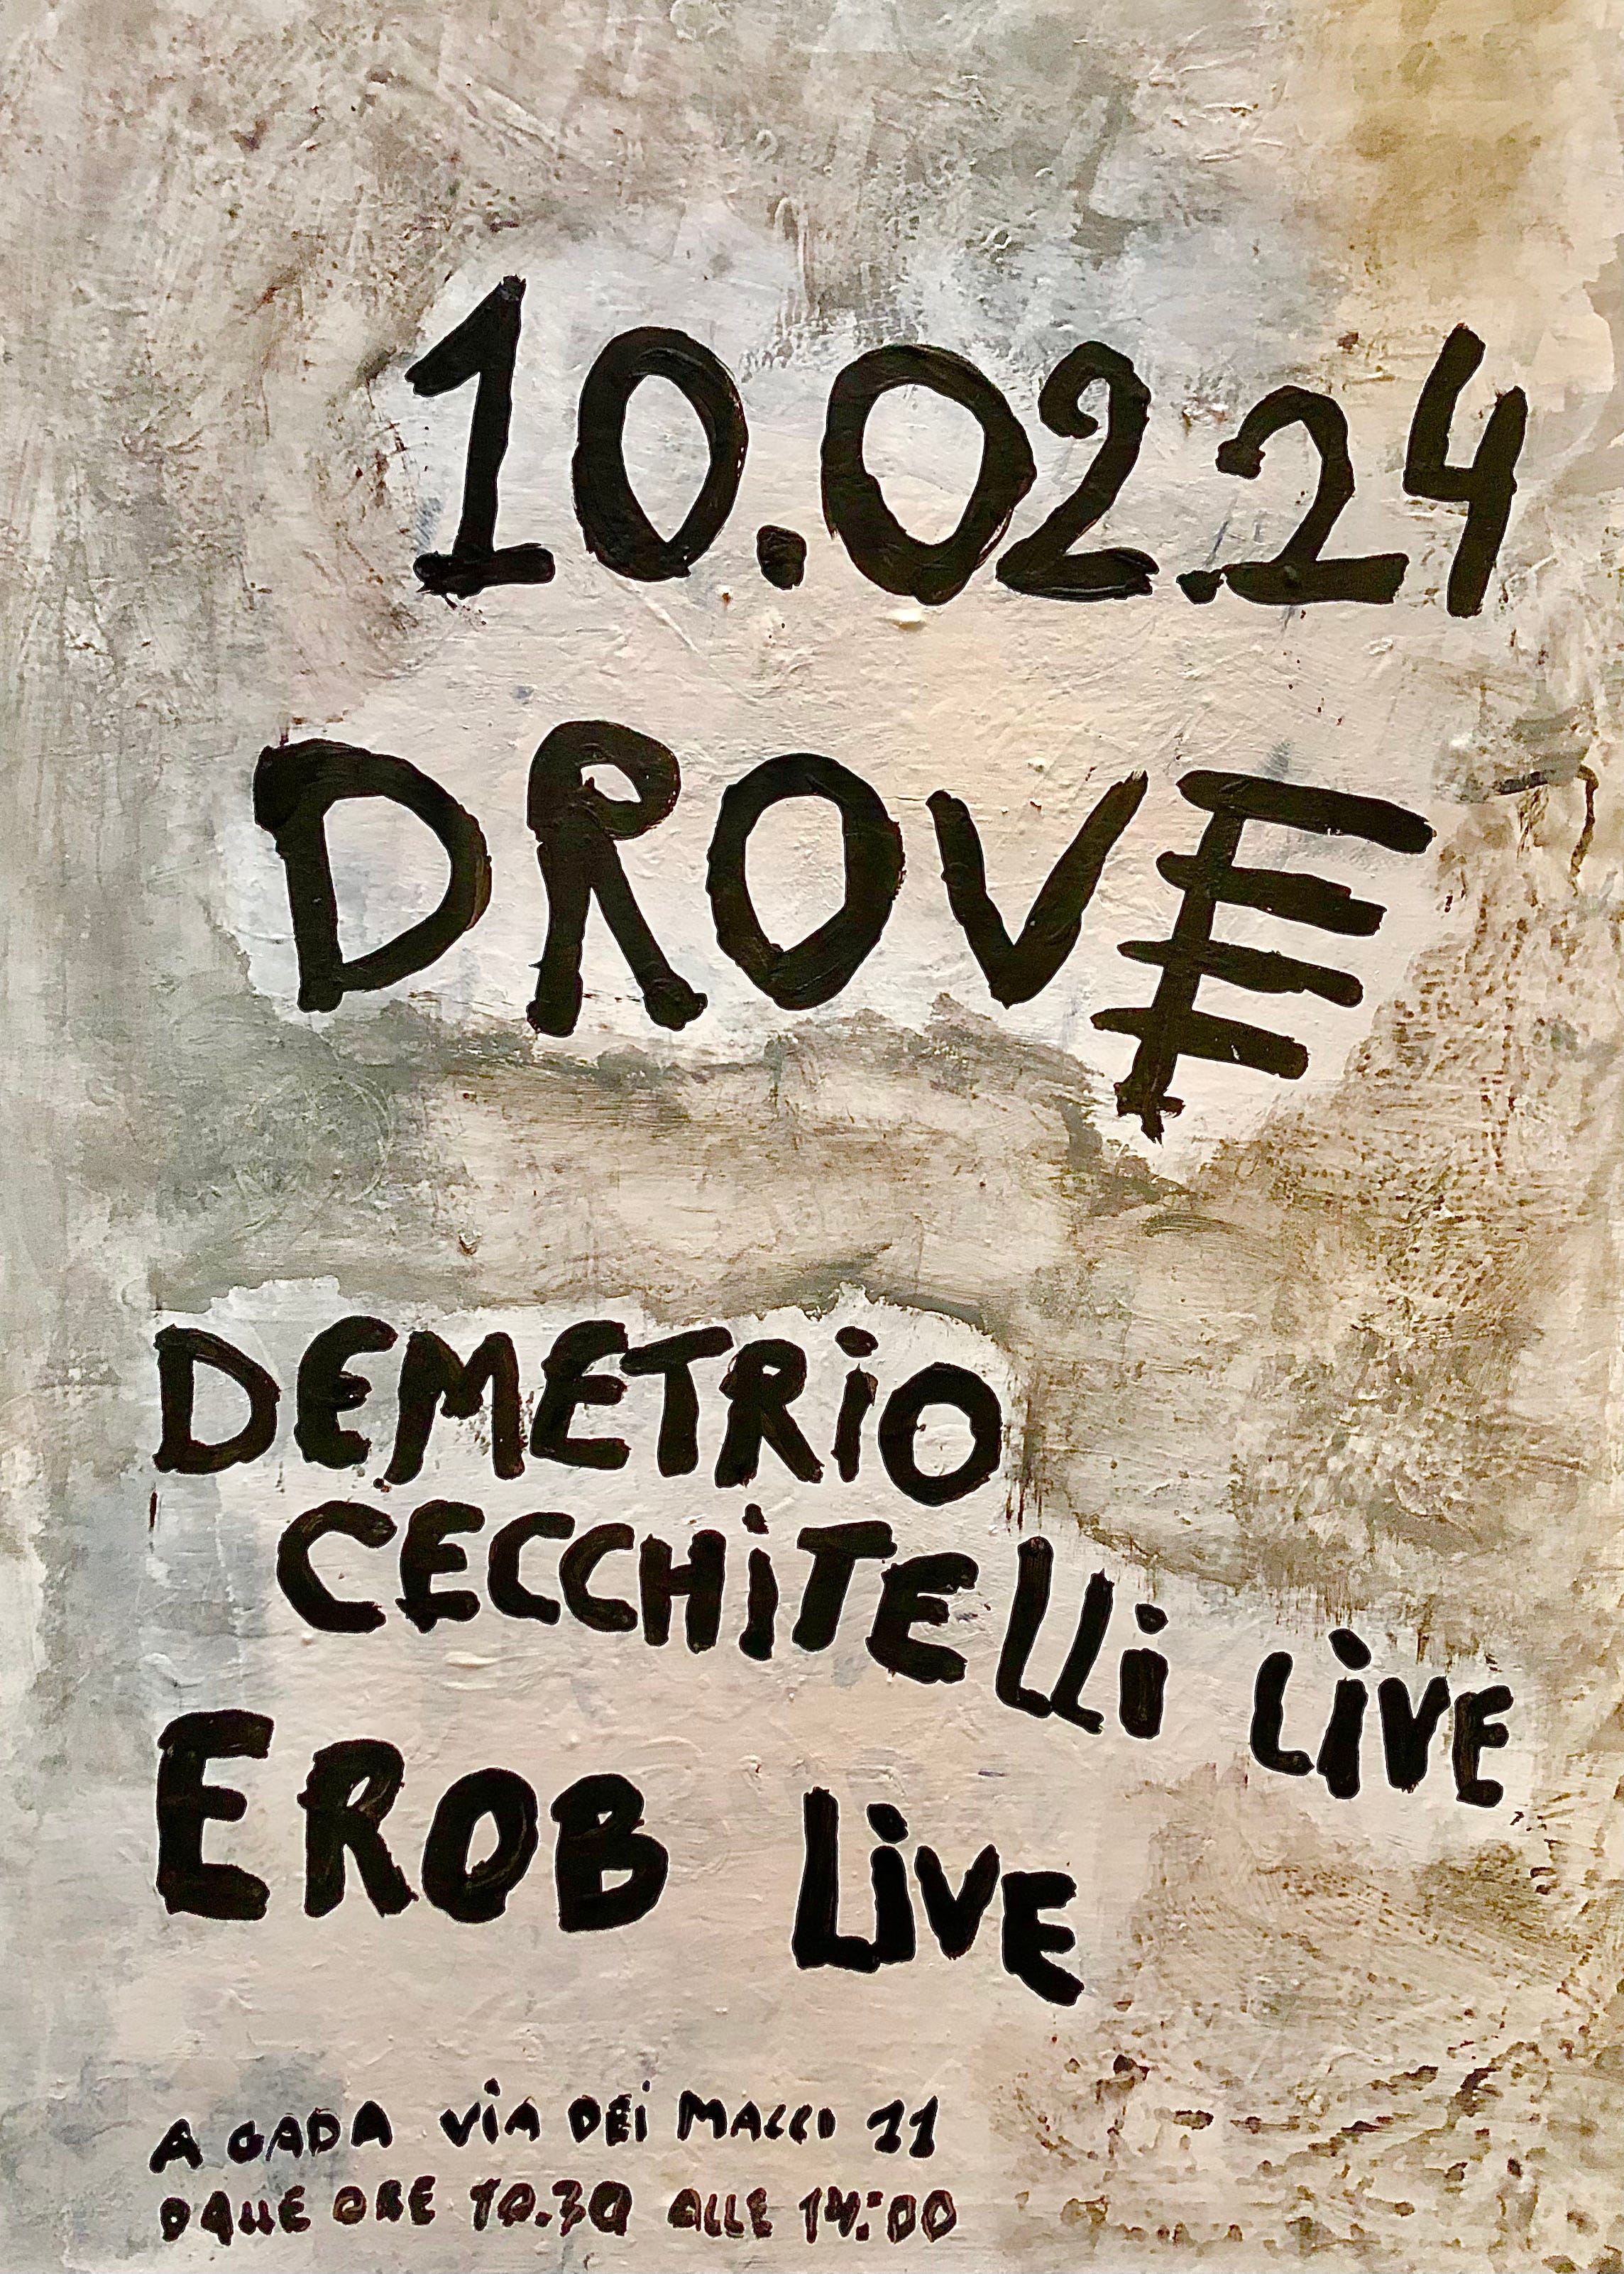 10.02.24
DROVE
DEMETRIO
CECCHiTElli LiVE
EROB LiVE
A GADA ViA DEi MACCI 11
DALLE ORE 10.30 ALLE 14:00